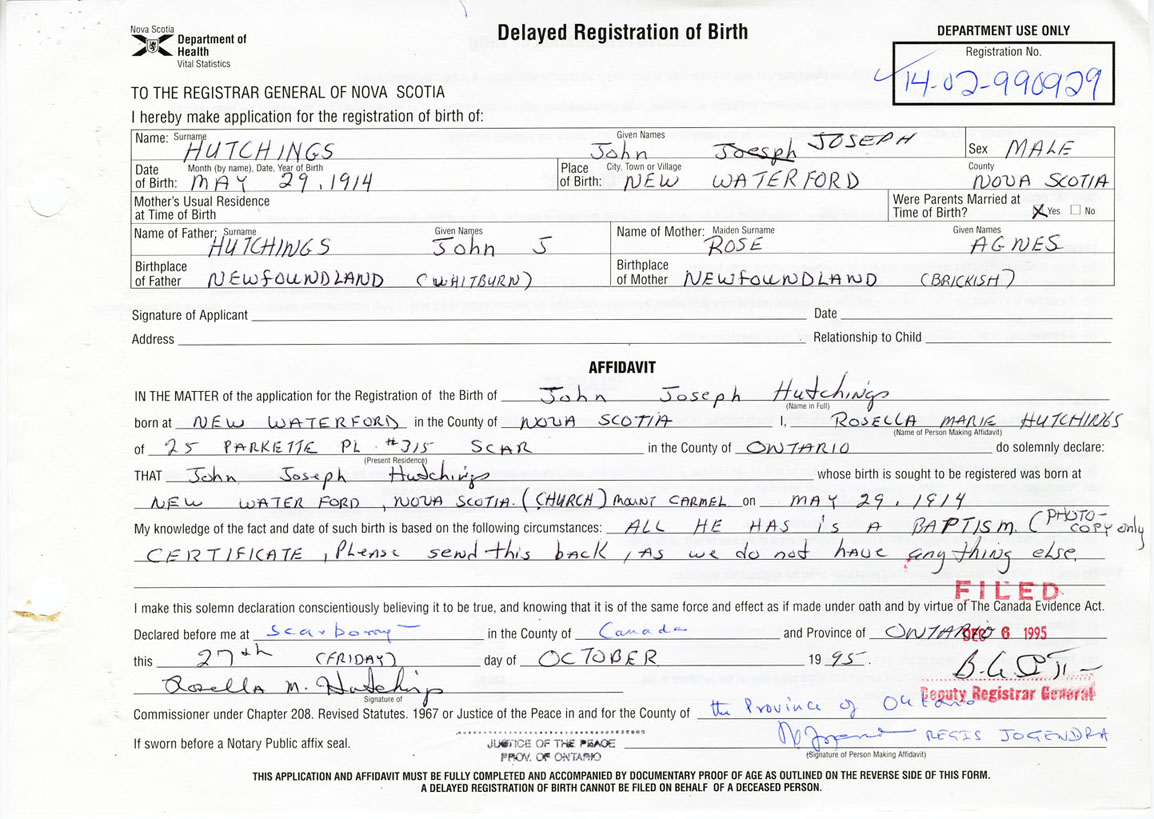 Nova Scotia
Department of
Health
Vital Statistics
Delayed Registration of Birth
DEPARTMENT USE ONLY
Registration No.
14-02-990929
TO THE REGISTRAR GENERAL OF NOVA SCOTIA
I hereby make application for the registration of birth of:
Name: Surname HUTCHINGS Given Names John Joesph JOSEPH Sex MALE
Date of Birth: Month (by name), Date, Year of Birth MAY 29, 1914 Place of Birth: City, Town or Village NEW WATERFORD County NOVA SCOTIA
Mother's Usual Residence at Time of Birth Were Parents Married at Time of Birth? X Yes No
Name of Father: Surname HUTCHINGS Given Names John J Name of Mother: Maiden Surname ROSE Given Names AGNES
Birthplace of Father NEWFOUNDLAND (WHITBURN) Birthplace of Mother NEWFOUNDLAND (BRICKISH)
Signature of Applicant Date
Address Relationship to Child
AFFIDAVIT
IN THE MATTER of the application for the Registration of the Birth of John Joseph Hutchings
(Name in Full)
born at NEW WATERFORD in the County of NOVA SCOTIA I, ROSELLA MARIE HUTCHINGS
(Name of Person Making Affidavit)
of 25 PARKETTE PL #315 SCAR in the County of ONTARIO do solemnly declare:
(Present Residence)
THAT John Joseph Hutchings whose birth is sought to be registered was born at
NEW WATER FORD, NOVA SCOTIA. (CHURCH) MOUNT CARMEL on MAY 29, 1914
My knowledge of the fact and date of such birth is based on the following circumstances: ALL HE HAS is A BAPTISM. (PHOTO-COPY only
CERTIFICATE, Please send this back, As we do not have anything else
FILED
I make this solemn declaration conscientiously believing it to be true, and knowing that it is of the same force and effect as if made under oath and by virtue of The Canada Evidence Act.
Declared before me at Scarboro in the County of Canada and Province of ONTARIO
DEC 6 1995
this 27th (FRIDAY) day of OCTOBER 1995.
Rosella M. Hutchings
Signature of
Deputy Registrar General
Commissioner under Chapter 208. Revised Statutes. 1967 or Justice of the Peace in and for the County of the Province of Ontario
If sworn before a Notary Public affix seal.
JUSTICE OF THE PEACE
PROV. OF ONTARIO
REGIS JOGENDRA
(Signature of Person Making Affidavit)
THIS APPLICATION AND AFFIDAVIT MUST BE FULLY COMPLETED AND ACCOMPANIED BY DOCUMENTARY PROOF OF AGE AS OUTLINED ON THE REVERSE SIDE OF THIS FORM.
A DELAYED REGISTRATION OF BIRTH CANNOT BE FILED ON BEHALF OF A DECEASED PERSON.